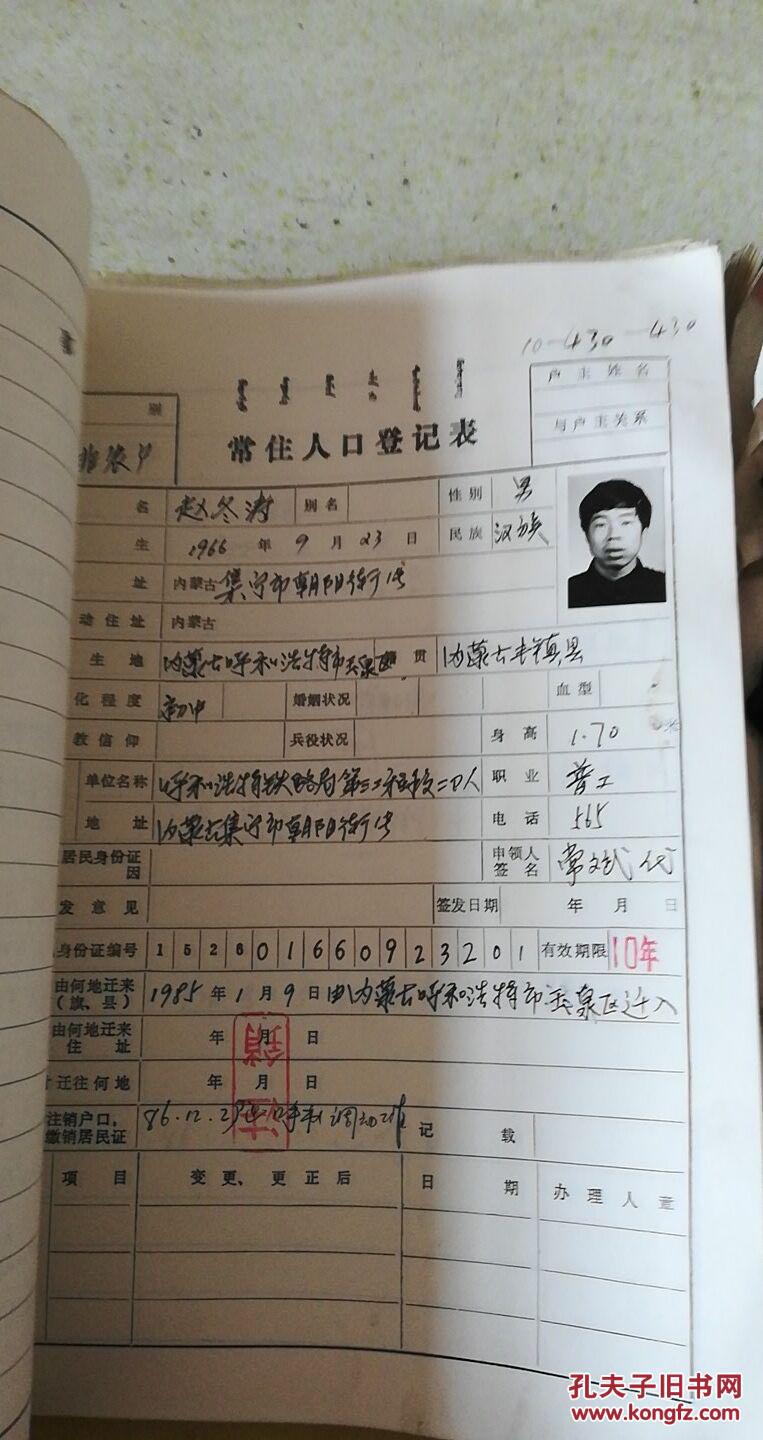 10-430-430
户主姓名
别
与户主关系
常住人口登记表
非农户
名 赵冬涛 别名 性别 男
生 1966 年 9 月 23 日 民族 汉族
址 内蒙古集宁市朝阳街1号
动住址 内蒙古
生地 内蒙古呼和浩特市玉泉区 贯 内蒙古丰镇县
化程度 初中 婚姻状况 血型
教信仰 兵役状况 身高 1.70 米
单位名称 呼和浩特铁路局第三工程段二卫人 职业 普工
地址 内蒙古集宁市朝阳街1号 电话 565
居民身份证 申领人签名 常文斌代
因
发意见 签发日期 年 月 日
身份证编号 152601660923201 有效期限 10年
由何地迁来(旗、县) 1985 年 1 月 9 日由内蒙古呼和浩特市玉泉区迁入
由何地迁来住址 年 月 日
迁往何地 年 月 日
注销
注销户口,缴销居民证 86.12.29 呼市调动工作 记载
项目 变更、更正后 日期 办理人章
孔夫子旧书网
www.kongfz.com